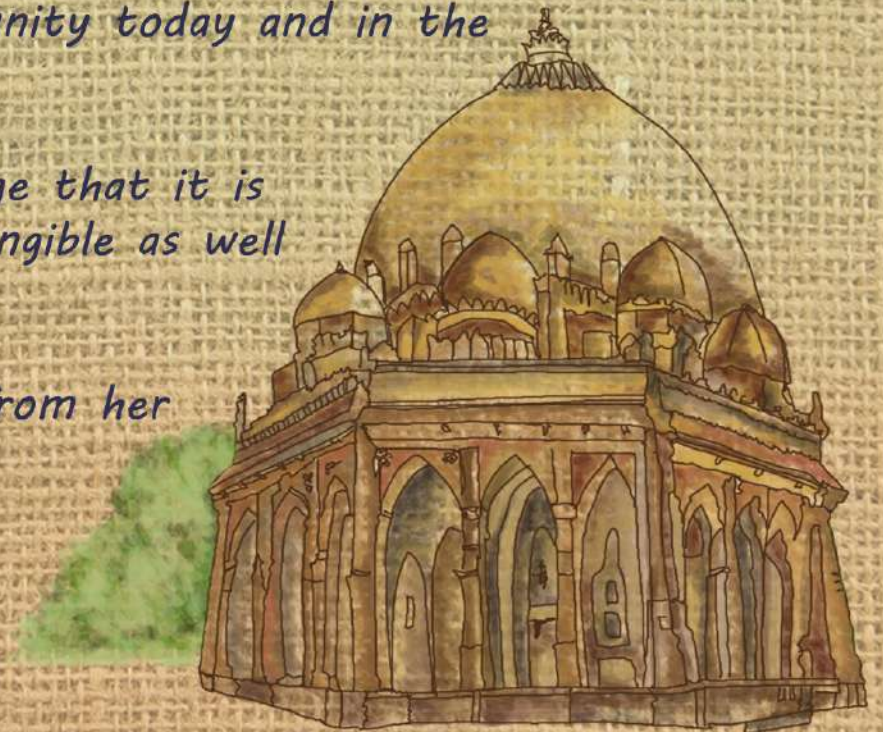 nity today and in the
ge that it is
ngible as well
rom her